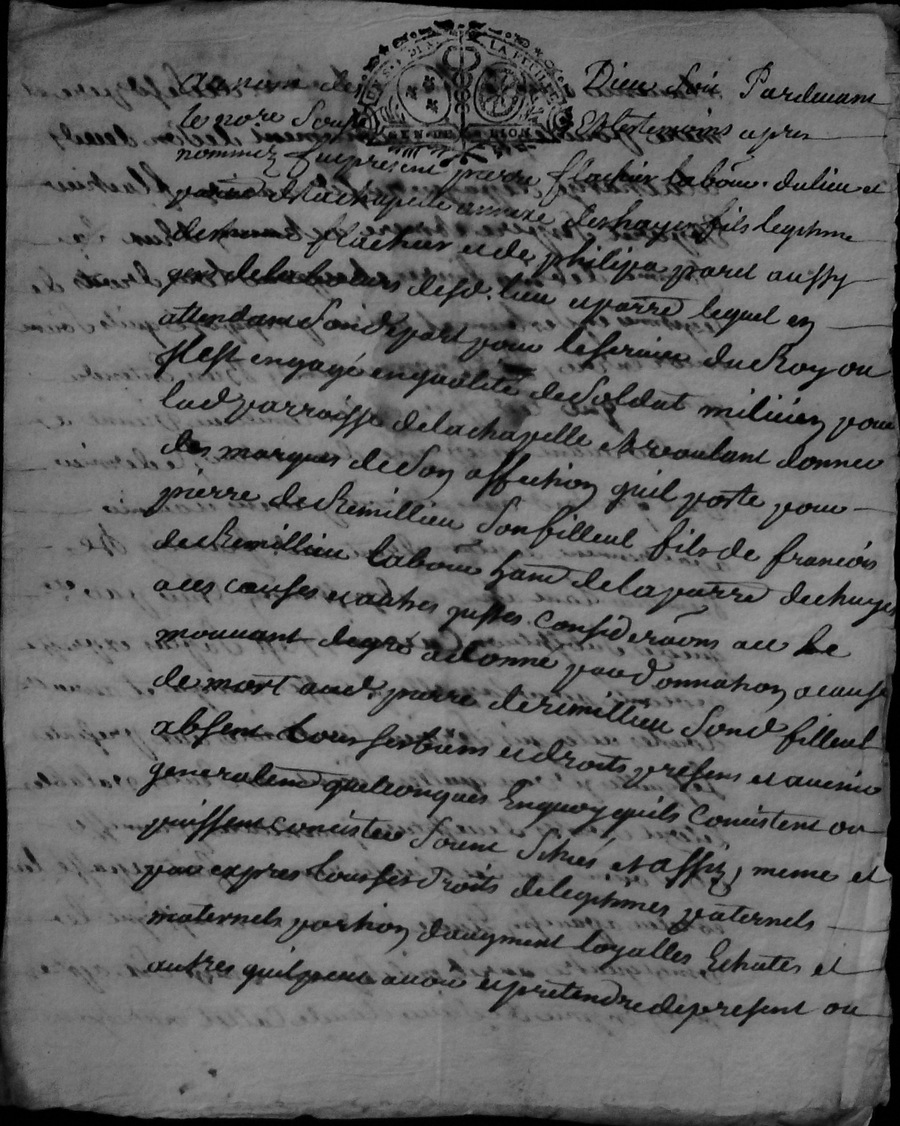 au nom de Dieu soit Pardevant
le nore Soub Et les temoins apres
nommez fut present pierre flachier labour. du lieu et
parre de la chapelle annexe deshayes fils legitime
de flachier et de philippa paret aussy
gens de labeurs desd. lieu et parre lequel en
attendant son depart pour le service du Roy ou
Il est engagé en qualité de Soldat milicien pour
lad parroisse de la chapelle Et voulant donner
des marques de son affection quil porte pour
pierre de Remillieu son filleul fils de francois
de Remillieu labour hant de la parre deshayes
a ces causes et autres justes considerãons au le
mouvant de gré a donne par donnation a cause
de mort aud. pierre de remillieu sond filleul
absent tous ses biens et droits presens et avenir
generalemt quelconques En quoy quils concistent ou
puissent concister soint sitiés et assis, meme et
par expres tous ses droits de legitimes paternels
maternels portion daugment loyalles Echutes et
autres quil peut avoir et pretendre de present ou